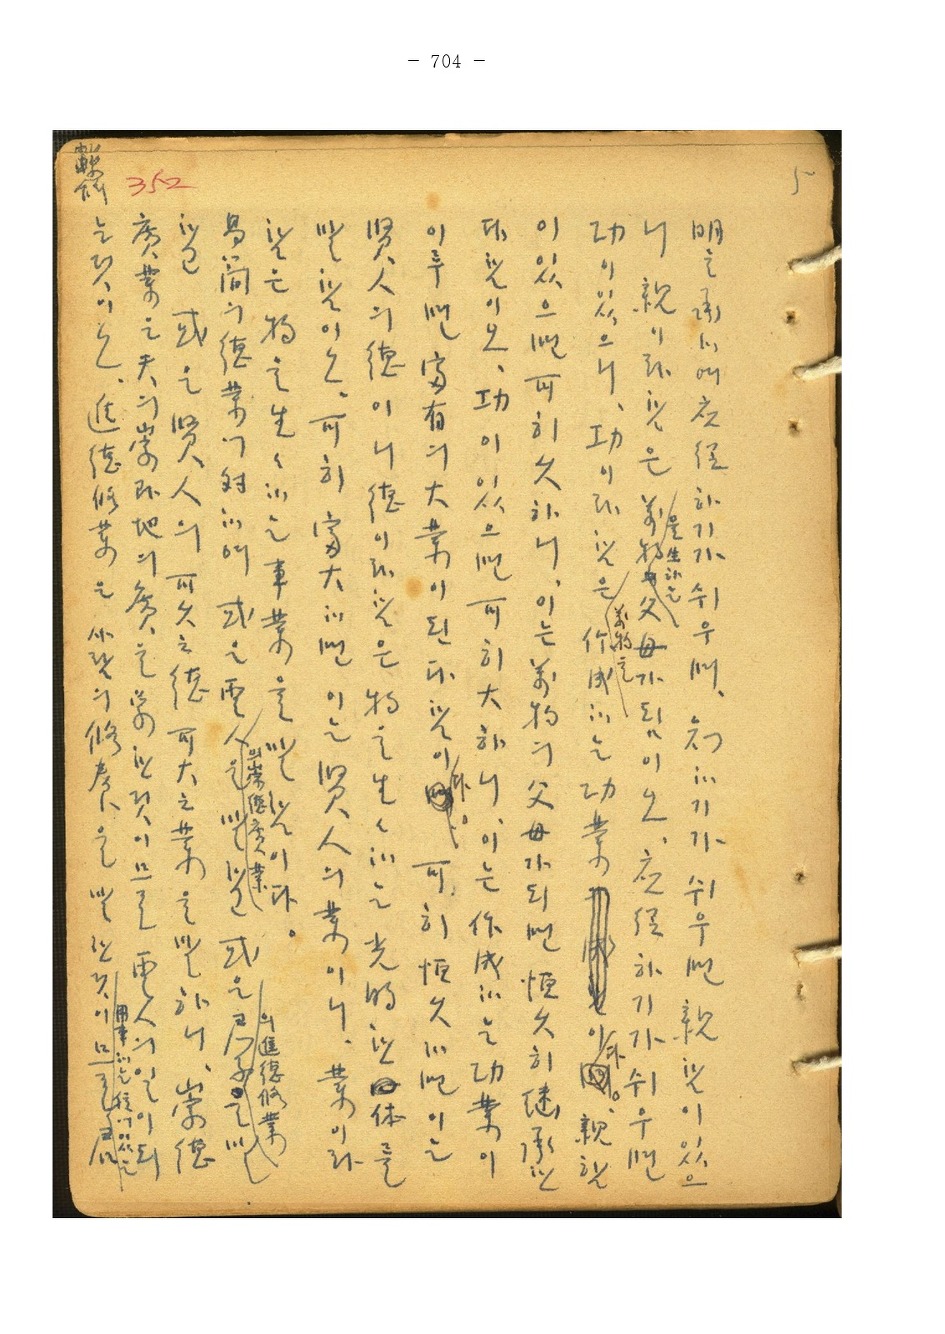 - 704 -
5
352
繫辭
明을 承하여 左經하기가 쉬우며, 知하기가 쉬우면 親함이 있으
니 親이라 함은 萬物을 生하는 父母가 됨이오, 하기가 쉬우면
功이 있으니, 功이라 함은 萬物을 作成하는 功業이다. 親함
이 있으면 可히 久하니, 이는 萬物의 父母가 되면 恒久히 繼承된
다 함이오, 功이 있으면 可히 大하니, 이는 作成하는 功業이
이루면 富有의 大業이 된다 함이다. 可히 恒久하면 이는
賢人의 德이니 德이라 함은 物을 生生하는 光明한 体를
말함이오, 可히 富大하면 이는 賢人의 業이니, 業이라
함은 物을 生生하는 事業을 말함이다.
易簡의 德業에 對하여 或은 聖人의 崇德廣業 或은 君子의 進德修業
或은 賢人의 可久之德 可大之業을 말하니, 崇德
廣業은 天의 崇과 地의 廣을 한 것이므로 聖人의 일이 되
는 것이오, 進德修業은 의 修養을 말한 것이므로 君